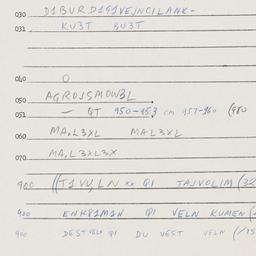 030 D1BURD1G1VEJNCILANK-
031 KU3T BU3T
040 O
050 AGROJSMOW3L
051 — QT 950-953 cm 957-960 (980
060 MA,L3XL MA:L3XL
070 MA,L3XL3X
900 ((T1VV,LN xx QI TAJVOLIM (32
900 ENK81M1N QI VELN KUMEN (
900 QI DU VEST VELN (/15